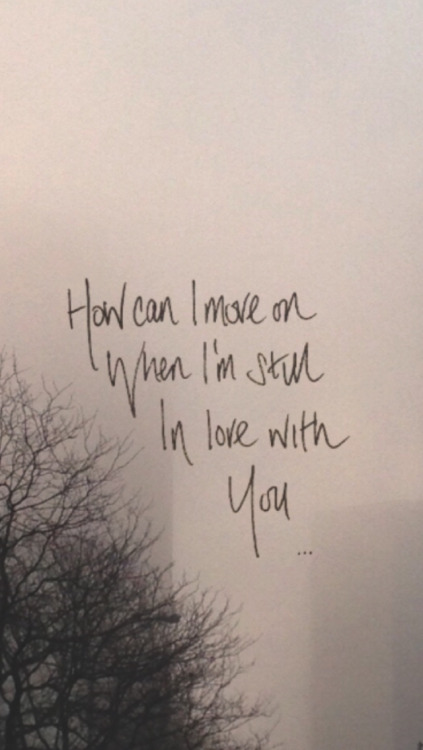 How can I move on
When I'm still
In love with
You
...